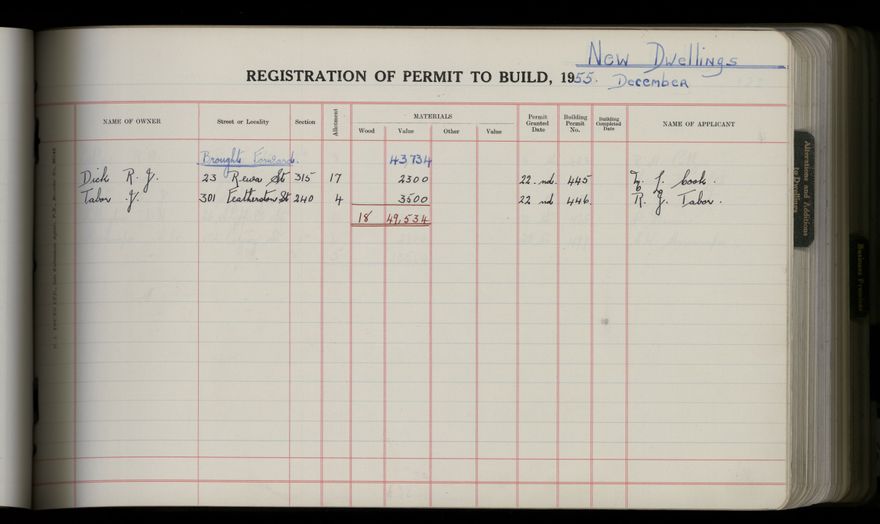 New Dwellings
REGISTRATION OF PERMIT TO BUILD, 1955. December
NAME OF OWNER Street or Locality Section Allotment MATERIALS Permit Granted Date Building Permit No. Building Completed Date NAME OF APPLICANT
Wood Value Other Value
Brought Forward. 43734
Dick R. J. 23 Rewa St 315 17 2300 22. nd. 445 L. J. Cook.
Tabor J. 301 Featherston St 240 4 3500 22 nd 446. R. J. Tabor.
18 49,534
Alterations and Additions
to Dwellings
Business Premises